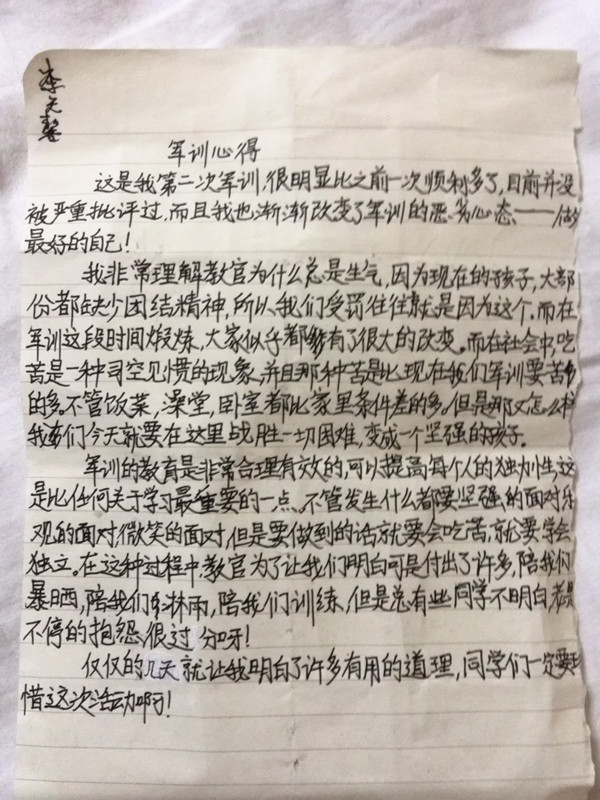 李元馨
军训心得
这是我第二次军训,很明显比之前一次顺利多了,目前并没
被严重批评过,而且我也渐渐改变了军训的恶劣心态——做
最好的自己!
我非常理解教官为什么总是生气,因为现在的孩子,大部
份都缺少团结精神,所以,我们受罚往往就是因为这个,而在
军训这段时间煅炼,大家似乎都有了很大的改变。而在社会中,吃
苦是一种司空见惯的现象,并且那种苦是比现在我们军训要苦多
的多。不管饭菜,澡堂,卧室都比家里条件差的多。但是那又怎么样
我们今天就要在这里战胜一切困难,变成一个坚强的孩子。
军训的教育是非常合理有效的,可以提高每个人的独力性,这
是比任何关于学习最重要的一点。不管发生什么都要坚强的面对乐
观的面对微笑的面对,但是要做到的话就要会吃苦,就要学会
独立。在这种过程中,教官为了让我们明白可是付出了许多,陪我们
暴晒,陪我们淋雨,陪我们训练,但是总有些同学不明白,老是
不停的抱怨,很过分呀!
仅仅的几天就让我明白了许多有用的道理,同学们一定要
惜这次活动啊!